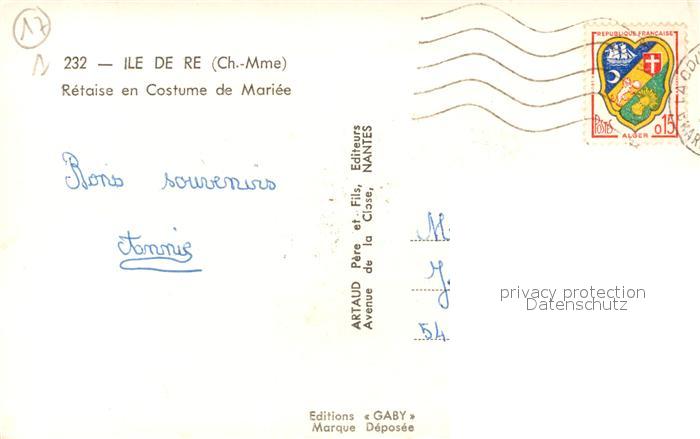 17
232 — ILE DE RE (Ch.-Mme)
Rétaise en Costume de Mariée
REPUBLIQUE FRANÇAISE
POSTES
ALGER
0,15
Bons souvenirs
Annie
ARTAUD Père et Fils, Editeurs
Avenue de la Close, NANTES
M.
J.
54
privacy protection
Datenschutz
Editions « GABY »
Marque Déposée